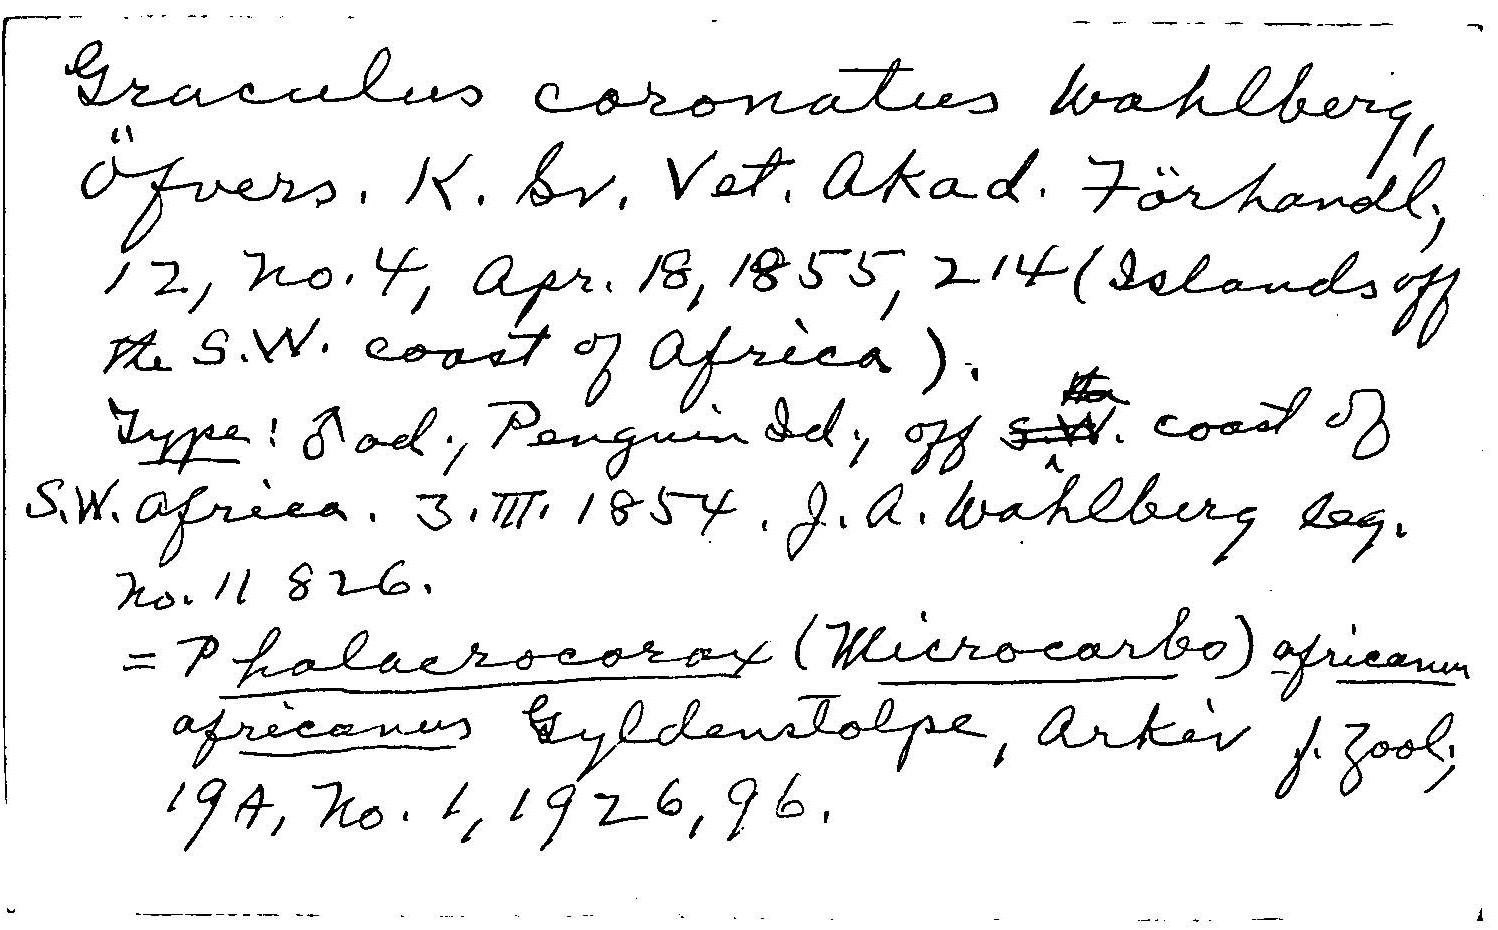 Graculus coronatus Wahlberg,
Öfvers. K. Sv. Vet. Akad. Förhandl.,
12, No. 4, Apr. 18, 1855, 214 (Islands off
the S.W. coast of Africa).
Type: ♂ ad., Penguin Id., off the coast of
S.W. Africa. 3.III.1854. J. A. Wahlberg leg.
No. 11 826.
= Phalacrocorax (Microcarbo) africanus
africanus Gyldenstolpe, Arkiv f. Zool.,
19A, No. 1, 1926, 96.